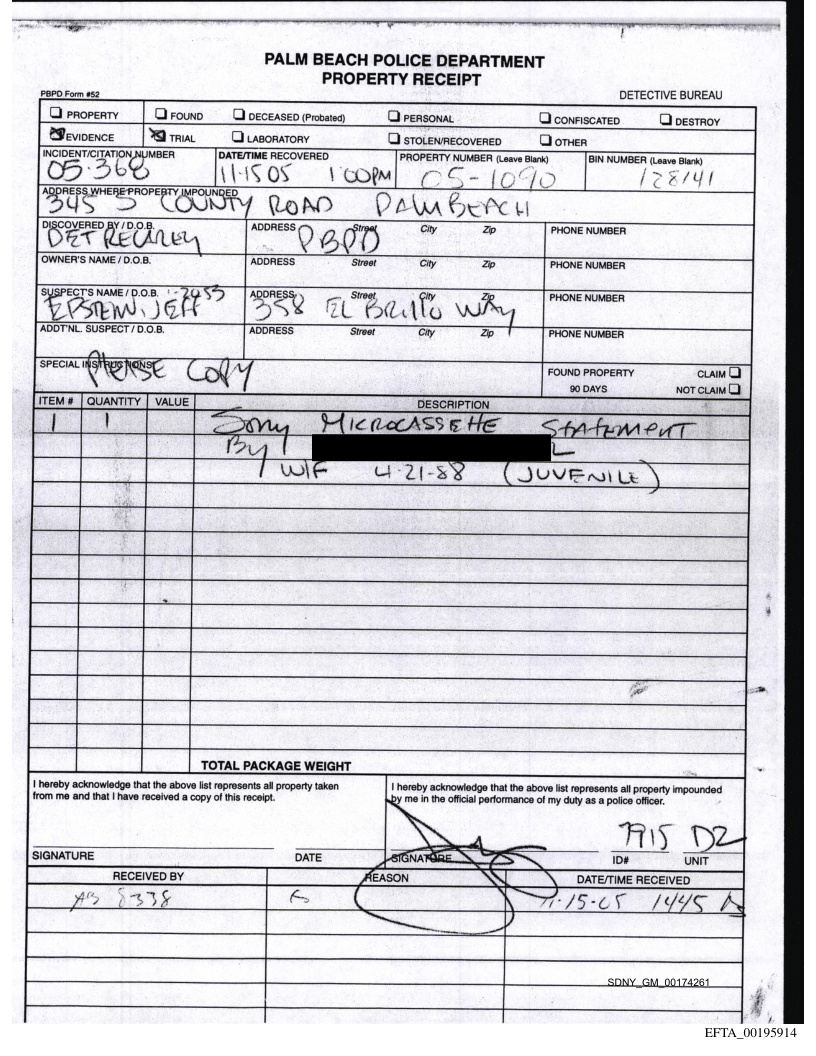 PALM BEACH POLICE DEPARTMENT
PROPERTY RECEIPT
PBPD Form #52
DETECTIVE BUREAU
PROPERTY FOUND DECEASED (Probated) PERSONAL CONFISCATED DESTROY
EVIDENCE TRIAL LABORATORY STOLEN/RECOVERED OTHER
INCIDENT/CITATION NUMBER DATE/TIME RECOVERED PROPERTY NUMBER (Leave Blank) BIN NUMBER (Leave Blank)
05-368 11-15 05 1:00PM 05-1090 128141
ADDRESS WHERE PROPERTY IMPOUNDED
345 S COUNTY ROAD PALM BEACH
DISCOVERED BY / D.O.B. ADDRESS Street City Zip PHONE NUMBER
DET RECAREY PBPD
OWNER'S NAME / D.O.B. ADDRESS Street City Zip PHONE NUMBER
SUSPECT'S NAME / D.O.B. ADDRESS Street City Zip PHONE NUMBER
EPSTEIN, JEFF 358 EL BRILLO WAY
ADDT'NL. SUSPECT / D.O.B. ADDRESS Street City Zip PHONE NUMBER
SPECIAL INSTRUCTIONS FOUND PROPERTY CLAIM
PLEASE COPY
90 DAYS NOT CLAIM
ITEM # QUANTITY VALUE DESCRIPTION
1 1 Sony MICROCASSETTE STATEMENT
By
W/F 4-21-88 (JUVENILE)
TOTAL PACKAGE WEIGHT
I hereby acknowledge that the above list represents all property taken
from me and that I have received a copy of this receipt.
I hereby acknowledge that the above list represents all property impounded
by me in the official performance of my duty as a police officer.
7915 D2
SIGNATURE DATE SIGNATURE ID# UNIT
RECEIVED BY REASON DATE/TIME RECEIVED
AB 8338 11-15-05 1445
SDNY_GM_00174261
EFTA_00195914